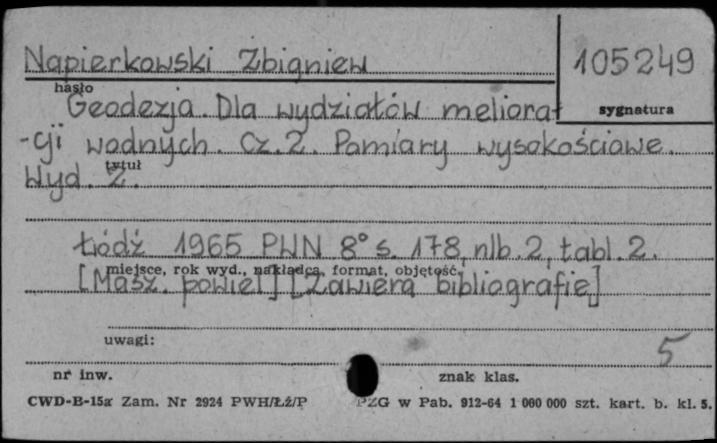 Napierkowski Zbigniew
105249
hasło
sygnatura
Geodezja. Dla wydziałów meliora
-cji wodnych. Cz. 2. Pomiary wysokościowe.
tytuł
Wyd. 2.
Łódź 1965 PWN 8° s. 178, nlb. 2, tabl. 2.
miejsce, rok wyd., nakładca, format, objętość
[Masz. powiel] [Zawiera bibliografię]
uwagi:
5
nr inw.
znak klas.
CWD-B-15a Zam. Nr 2924 PWH/Łź/P
PZG w Pab. 912-64 1 000 000 szt. kart. b. kl. 5.